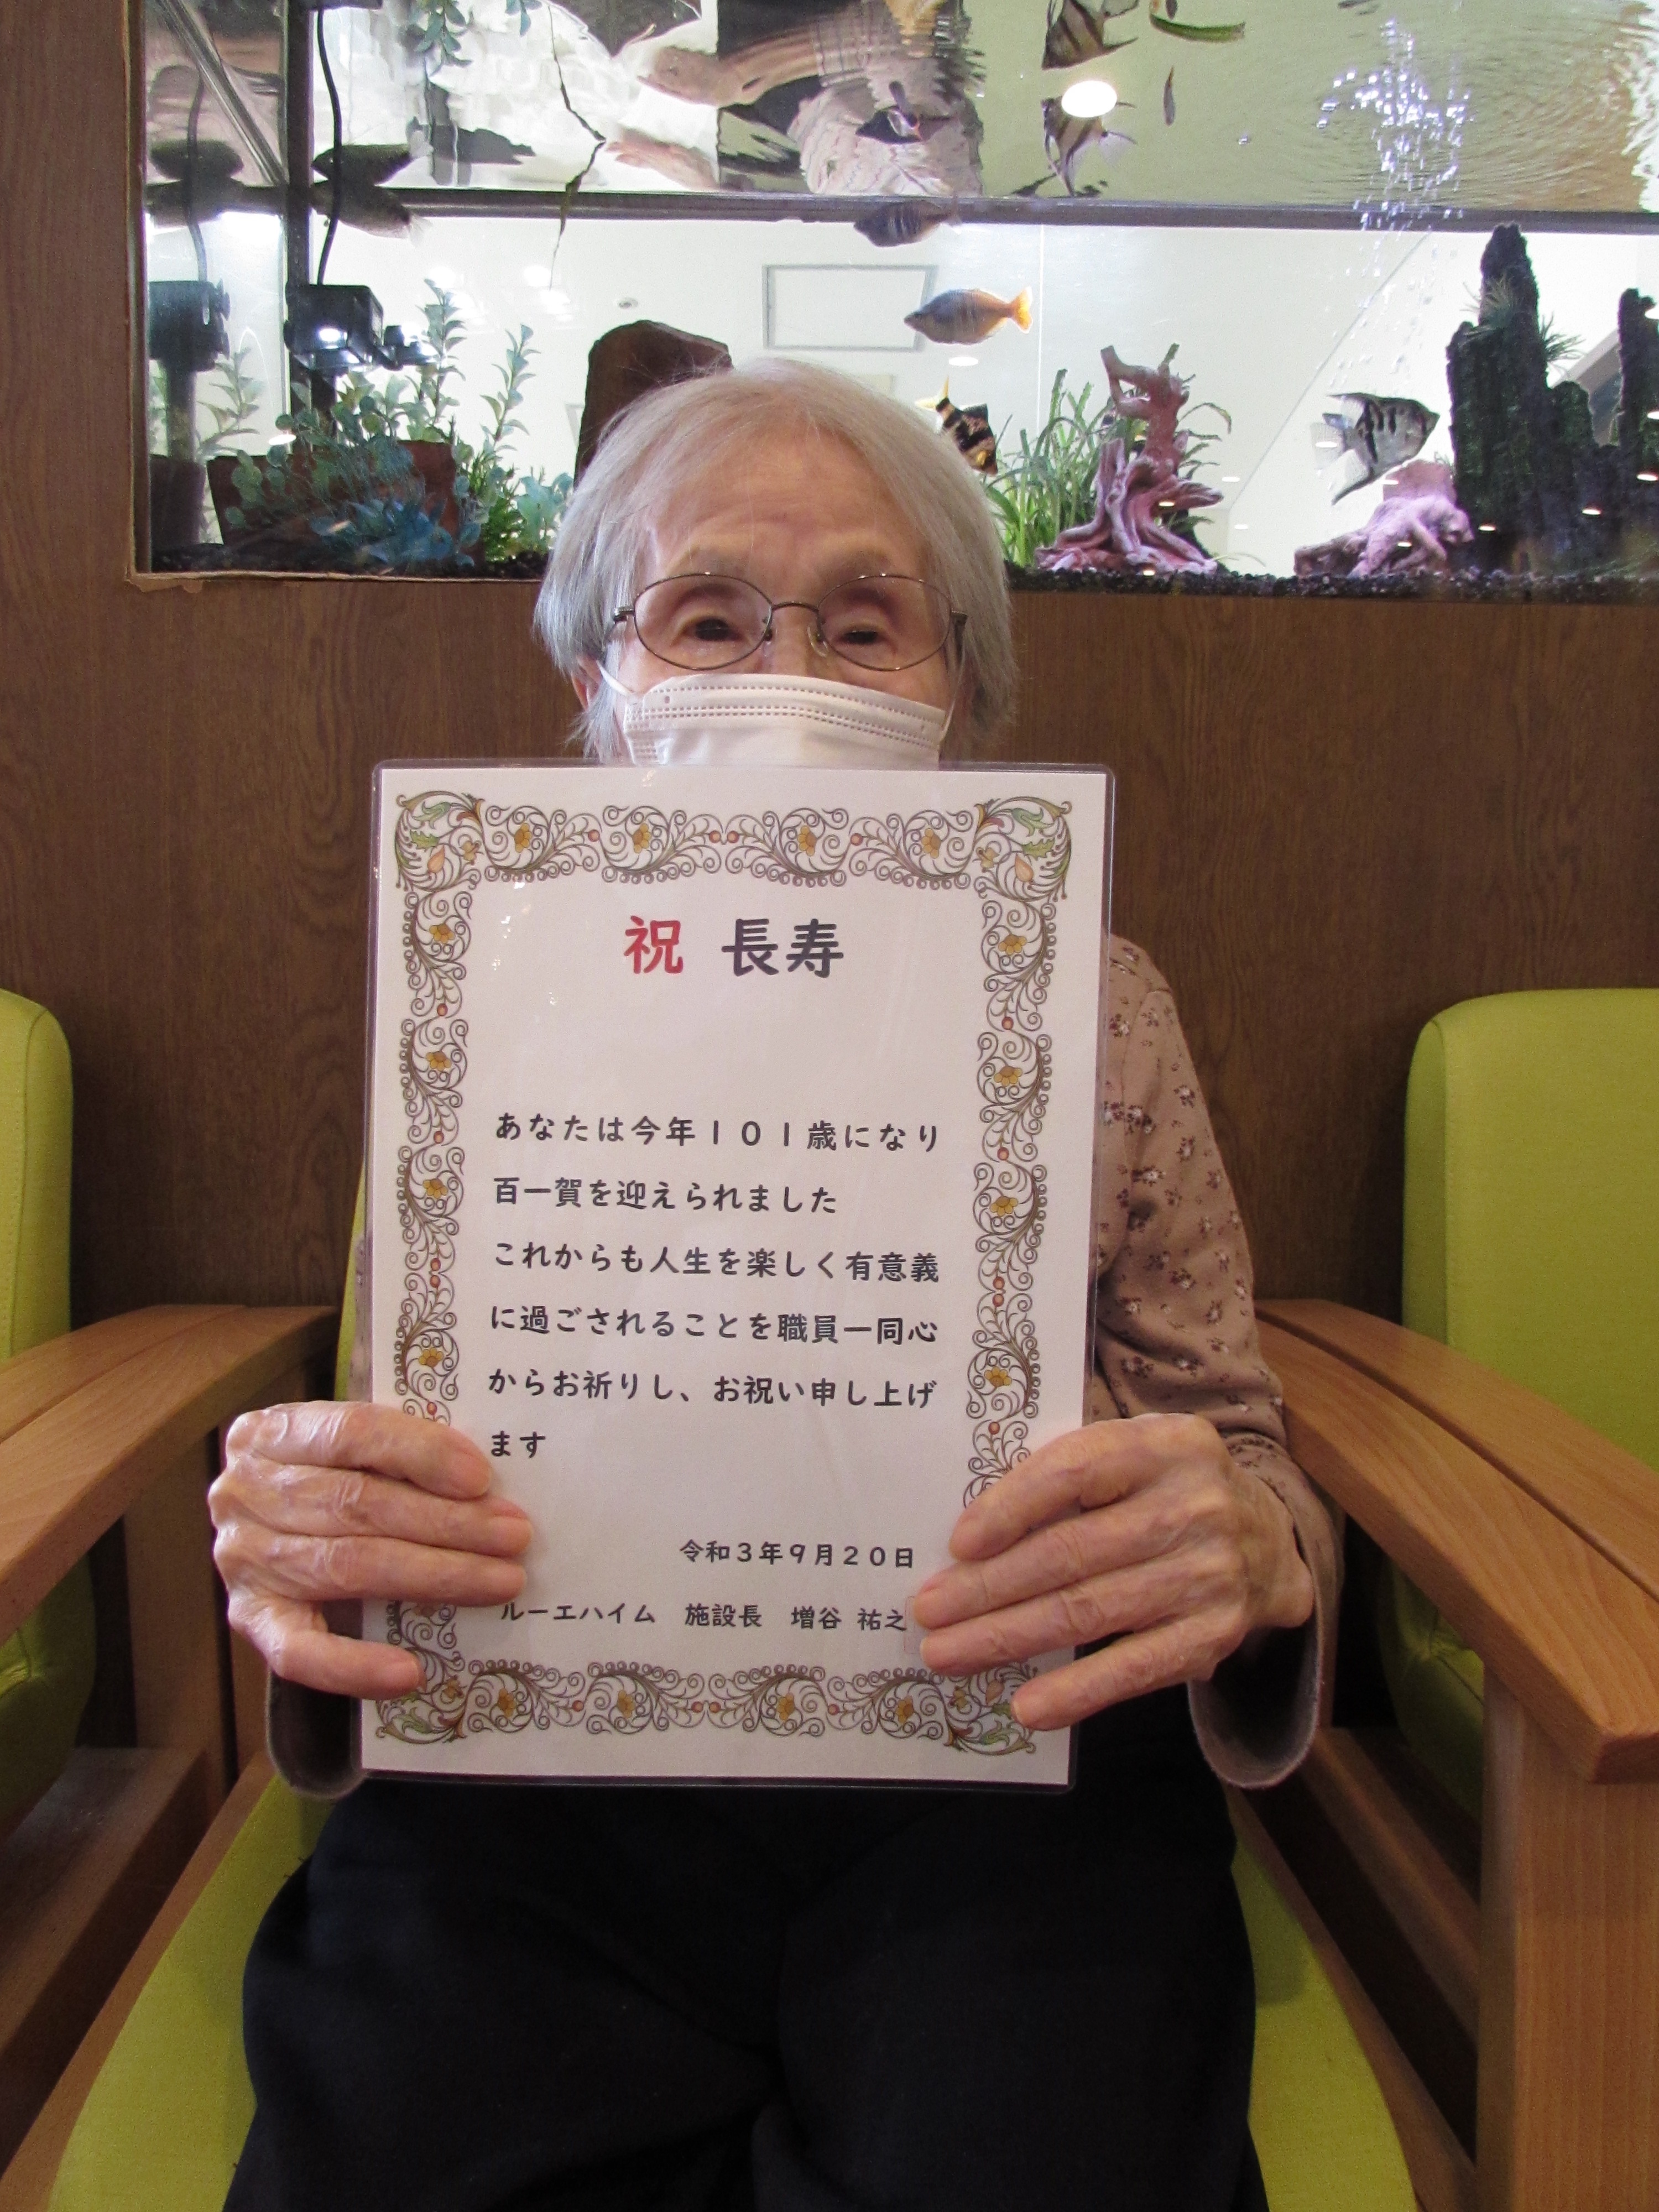 祝 長寿
あなたは今年１０１歳になり
百一賀を迎えられました
これからも人生を楽しく有意義
に過ごされることを職員一同心
からお祈りし、お祝い申し上げ
ます
令和３年９月２０日
ルーエハイム　施設長　増谷 祐之